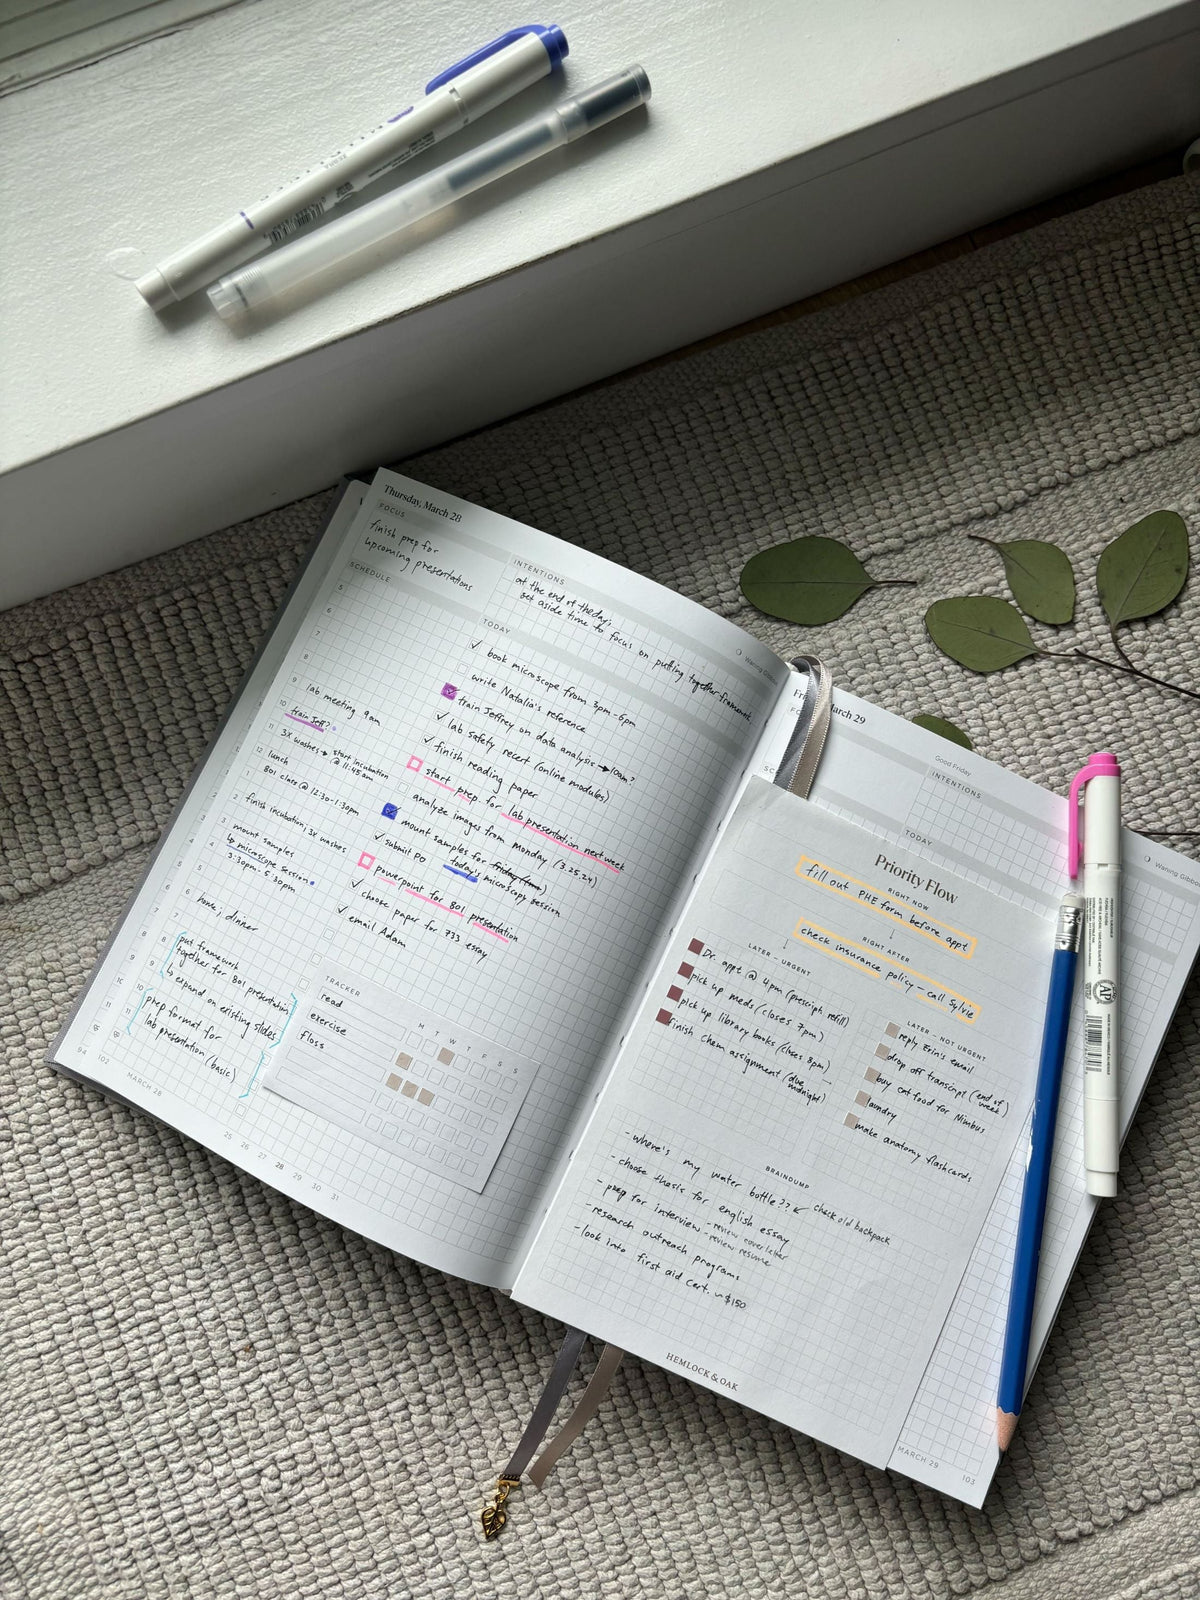 Thursday, March 28
FOCUS
finish prep for
upcoming presentations
INTENTIONS
at the end of the day,
set aside time to focus on putting together framework
Waning Gibbous
SCHEDULE
5
6
7
8
9 lab meeting 9am
10 train Jeff?
11 3x washes → start incubation
@ 11:45am
12 lunch
1 801 class @ 12:30-1:30pm
2 finish incubation, 3x washes
3 mount samples
4 ↳ microscope session
5 3:30pm-5:30pm
6 home, dinner
7
8 put framework
together for 801 presentation
9 ↳ expand on existing slides
10 prep format for
11 lab presentation (basic)
TODAY
✓ book microscope from 3pm-6pm
write Natalia's reference
✓ train Jeffrey on data analysis → 10am?
✓ lab safety recert (online modules)
✓ finish reading paper
start prep for lab presentation next week
analyze images from Monday (3.25.24)
✓ mount samples for friday (tmw)
today's microscopy session
✓ submit PO
powerpoint for 801 presentation
✓ choose paper for 733 essay
✓ email Adam
TRACKER
M T W T F S S
read
exercise
floss
94 102
MARCH 28
25 26 27 28 29 30 31
March 29
Good Friday
INTENTIONS
TODAY
Waning Gibbous
Priority Flow
RIGHT NOW
fill out PHE form before appt
↓
RIGHT AFTER
check insurance policy - call Sylvie
LATER - URGENT
Dr. appt @ 4pm (prescript. refill)
pick up meds (closes 7pm)
pick up library books (closes 8pm)
finish chem assignment (due →
midnight)
LATER - NOT URGENT
reply Erin's email
drop off transcript (end of
week)
buy cat food for Nimbus
laundry
make anatomy flashcards
BRAINDUMP
- where's my water bottle?? ↙ check old backpack
- choose thesis for english essay
- prep for interview - review cover letter
- review resume
- research outreach programs
- look into first aid cert. ~$150
HEMLOCK & OAK
MARCH 29 103
AP